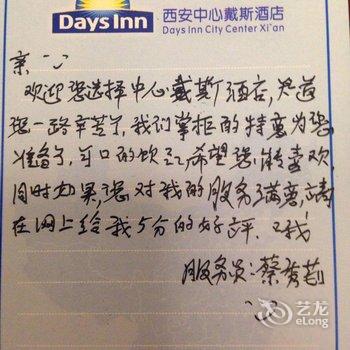 Days Inn
西安中心戴斯酒店
Days Inn City Center Xi'an
亲
欢迎您选择中心戴斯酒店,知道
您一路辛苦了,我们掌柜的特意为您
准备了,可口的饮品,希望您能喜欢,
同时如果您对我的服务满意,请
在网上给我5分的好评.
服务员:蔡秀莉
艺龙
eLong